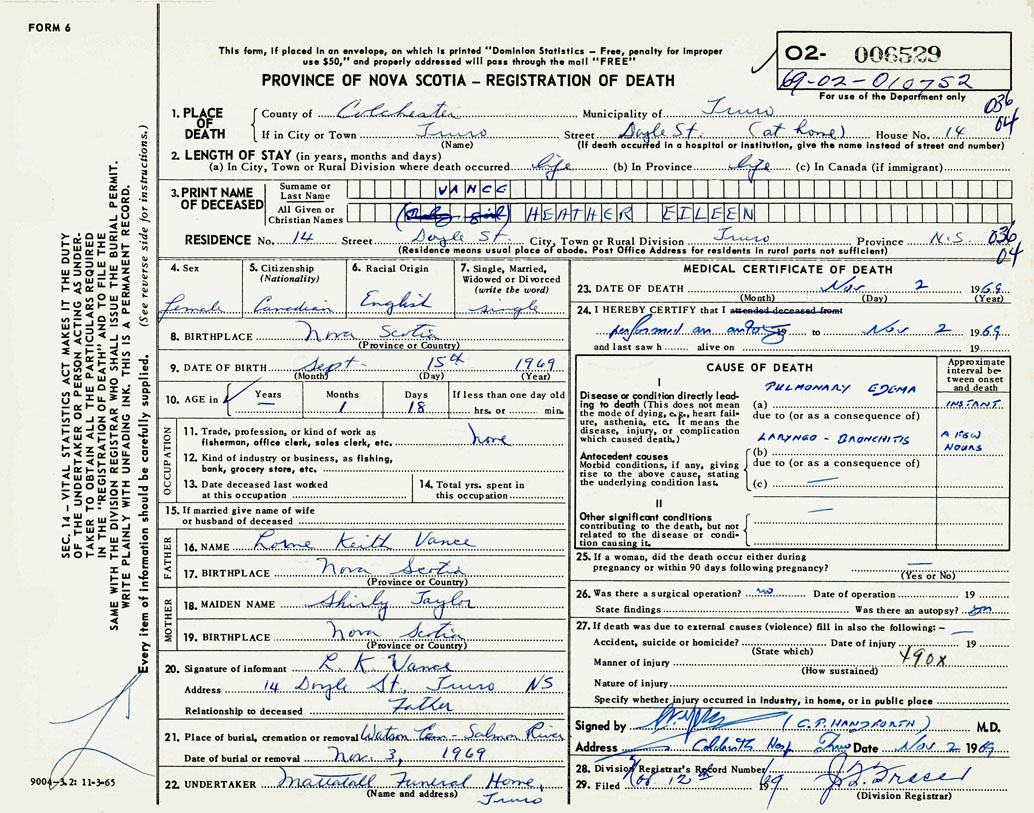 FORM 6
This form, if placed in an envelope, on which is printed "Dominion Statistics – Free, penalty for improper
use $50," and properly addressed will pass through the mail "FREE"
PROVINCE OF NOVA SCOTIA – REGISTRATION OF DEATH
O2- 006529
69-02-010752
For use of the Department only
036
04
1. PLACE OF DEATH
County of Colchester Municipality of Truro
If in City or Town Truro Street Doyle St. (at home) House No. 14
(Name) (If death occurred in a hospital or institution, give the name instead of street and number)
2. LENGTH OF STAY (in years, months and days)
(a) In City, Town or Rural Division where death occurred life (b) In Province life (c) In Canada (if immigrant)
3. PRINT NAME OF DECEASED
Surname or Last Name VANCE
All Given or Christian Names (Baby girl) HEATHER EILEEN
RESIDENCE No. 14 Street Doyle St. City, Town or Rural Division Truro Province N.S.
036
04
(Residence means usual place of abode. Post Office Address for residents in rural parts not sufficient)
4. Sex
female
5. Citizenship
(Nationality)
Canadian
6. Racial Origin
English
7. Single, Married,
Widowed or Divorced
(write the word)
single
8. BIRTHPLACE Nova Scotia
(Province or Country)
9. DATE OF BIRTH Sept. 15th 1969
(Month) (Day) (Year)
10. AGE in
Years
Months
1
Days
18
If less than one day old
hrs. or min.
OCCUPATION
11. Trade, profession, or kind of work as
fisherman, office clerk, sales clerk, etc. none
12. Kind of industry or business, as fishing,
bank, grocery store, etc.
13. Date deceased last worked
at this occupation
14. Total yrs. spent in
this occupation
15. If married give name of wife
or husband of deceased
FATHER
16. NAME Lorne Keith Vance
17. BIRTHPLACE Nova Scotia
(Province or Country)
MOTHER
18. MAIDEN NAME Shirly Taylor
19. BIRTHPLACE Nova Scotia
(Province or Country)
20. Signature of informant L. K. Vance
Address 14 Doyle St. Truro NS
Relationship to deceased Father
21. Place of burial, cremation or removal Watson Cem - Salmon River
Date of burial or removal Nov. 3, 1969
22. UNDERTAKER Mattatall Funeral Home,
(Name and address) Truro
MEDICAL CERTIFICATE OF DEATH
23. DATE OF DEATH Nov 2 1969
(Month) (Day) (Year)
24. I HEREBY CERTIFY that I attended deceased from
performed an autopsy to Nov 2 1969
and last saw h alive on 19
CAUSE OF DEATH
Approximate
interval be-
tween onset
and death
I
Disease or condition directly lead-
ing to death (This does not mean
the mode of dying, e.g., heart fail-
ure, asthenia, etc. It means the
disease, injury, or complication
which caused death.)
PULMONARY EDEMA
(a) INSTANT
due to (or as a consequence of)
LARYNGO - BRONCHITIS
A FEW
HOURS
Antecedent causes
Morbid conditions, if any, giving
rise to the above cause, stating
the underlying condition last.
(b)
due to (or as a consequence of)
(c) —
II
Other significant conditions
contributing to the death, but not
related to the disease or condi-
tion causing it.
—
—
25. If a woman, did the death occur either during
pregnancy or within 90 days following pregnancy? —
(Yes or No)
26. Was there a surgical operation? no Date of operation 19
State findings Was there an autopsy? yes
27. If death was due to external causes (violence) fill in also the following: – —
Accident, suicide or homicide? Date of injury 19
(State which)
Manner of injury 490x
(How sustained)
Nature of injury
Specify whether injury occurred in industry, in home, or in public place
Signed by (C. P. HANDFORTH) M.D.
Address Colchester Hosp Truro Date Nov. 2 1969
28. Division Registrar's Record Number
29. Filed Nov 12th 1969
(Division Registrar)
SEC. 14 – VITAL STATISTICS ACT MAKES IT THE DUTY
OF THE UNDERTAKER OR PERSON ACTING AS UNDER-
TAKER TO OBTAIN ALL THE PARTICULARS REQUIRED
IN THE "REGISTRATION OF DEATH" AND TO FILE THE
SAME WITH THE DIVISION REGISTRAR WHO SHALL ISSUE THE BURIAL PERMIT.
WRITE PLAINLY WITH UNFADING INK. THIS IS A PERMANENT RECORD.
Every item of information should be carefully supplied. (See reverse side for instructions.)
9004-3.2: 11-3-65